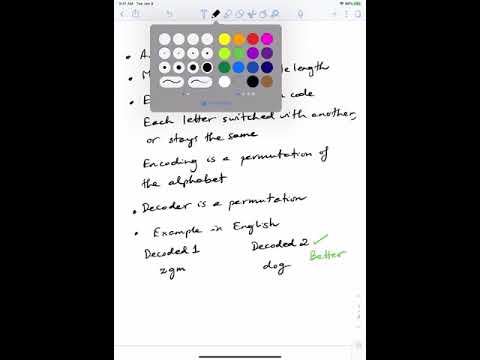 • A
• M le length
• E code
Each letter switched with another,
or stays the same
Encoding is a permutation of
the alphabet
• Decoder is a permutation
• Example in English
Decoded 1 Decoded 2 ✓
Better
zgm dog